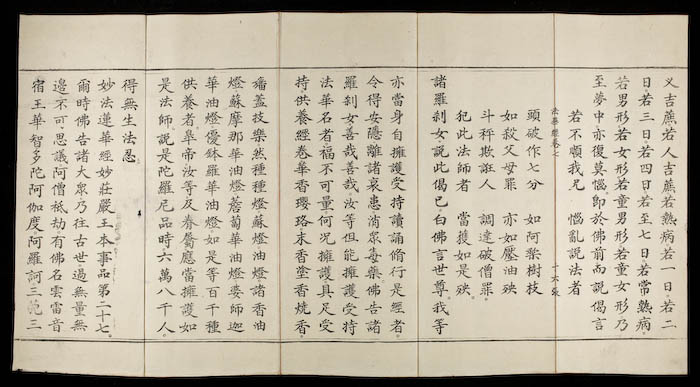 乂吉蔗若人吉蔗若熱病若一日。若二
日若三日若四日若至七日若常熱病。
若男形若女形若童男形若童女形乃
至夢中亦復莫惱。即於佛前而說偈言
若不順我呪　惱亂說法者
法華經卷七　十六張
頭破作七分　如阿棃樹枝
如殺父母罪　亦如壓油殃
斗秤欺誑人　調達破僧罪。
犯此法師者　當獲如是殃
諸羅刹女說此偈已白佛言世尊我等
亦當身自擁護受持讀誦脩行是經者。
令得安隱離諸衰患消眾毒藥。佛告諸
羅刹女善哉善哉。汝等但能擁護受持
法華名者福不可量何況擁護具足受
持供養經卷華香瓔珞末香塗香燒香。
旛蓋技樂然種種燈蘇燈油燈諸香油
燈蘇摩那華油燈薝蔔華油燈婆師迦
華油燈優鉢羅華油燈。如是等百千種
供養者。睾帝汝等及眷屬應當擁護如
是法師。說是陀羅尼品時六萬八千人。
得無生法忍
妙法蓮華經妙莊嚴王本事品第二十七。
爾時佛告諸大眾乃往古世過無量無
邊不可。思議阿僧祗劫有佛名雲雷音
宿王華智多陀阿伽度阿羅訶三藐三